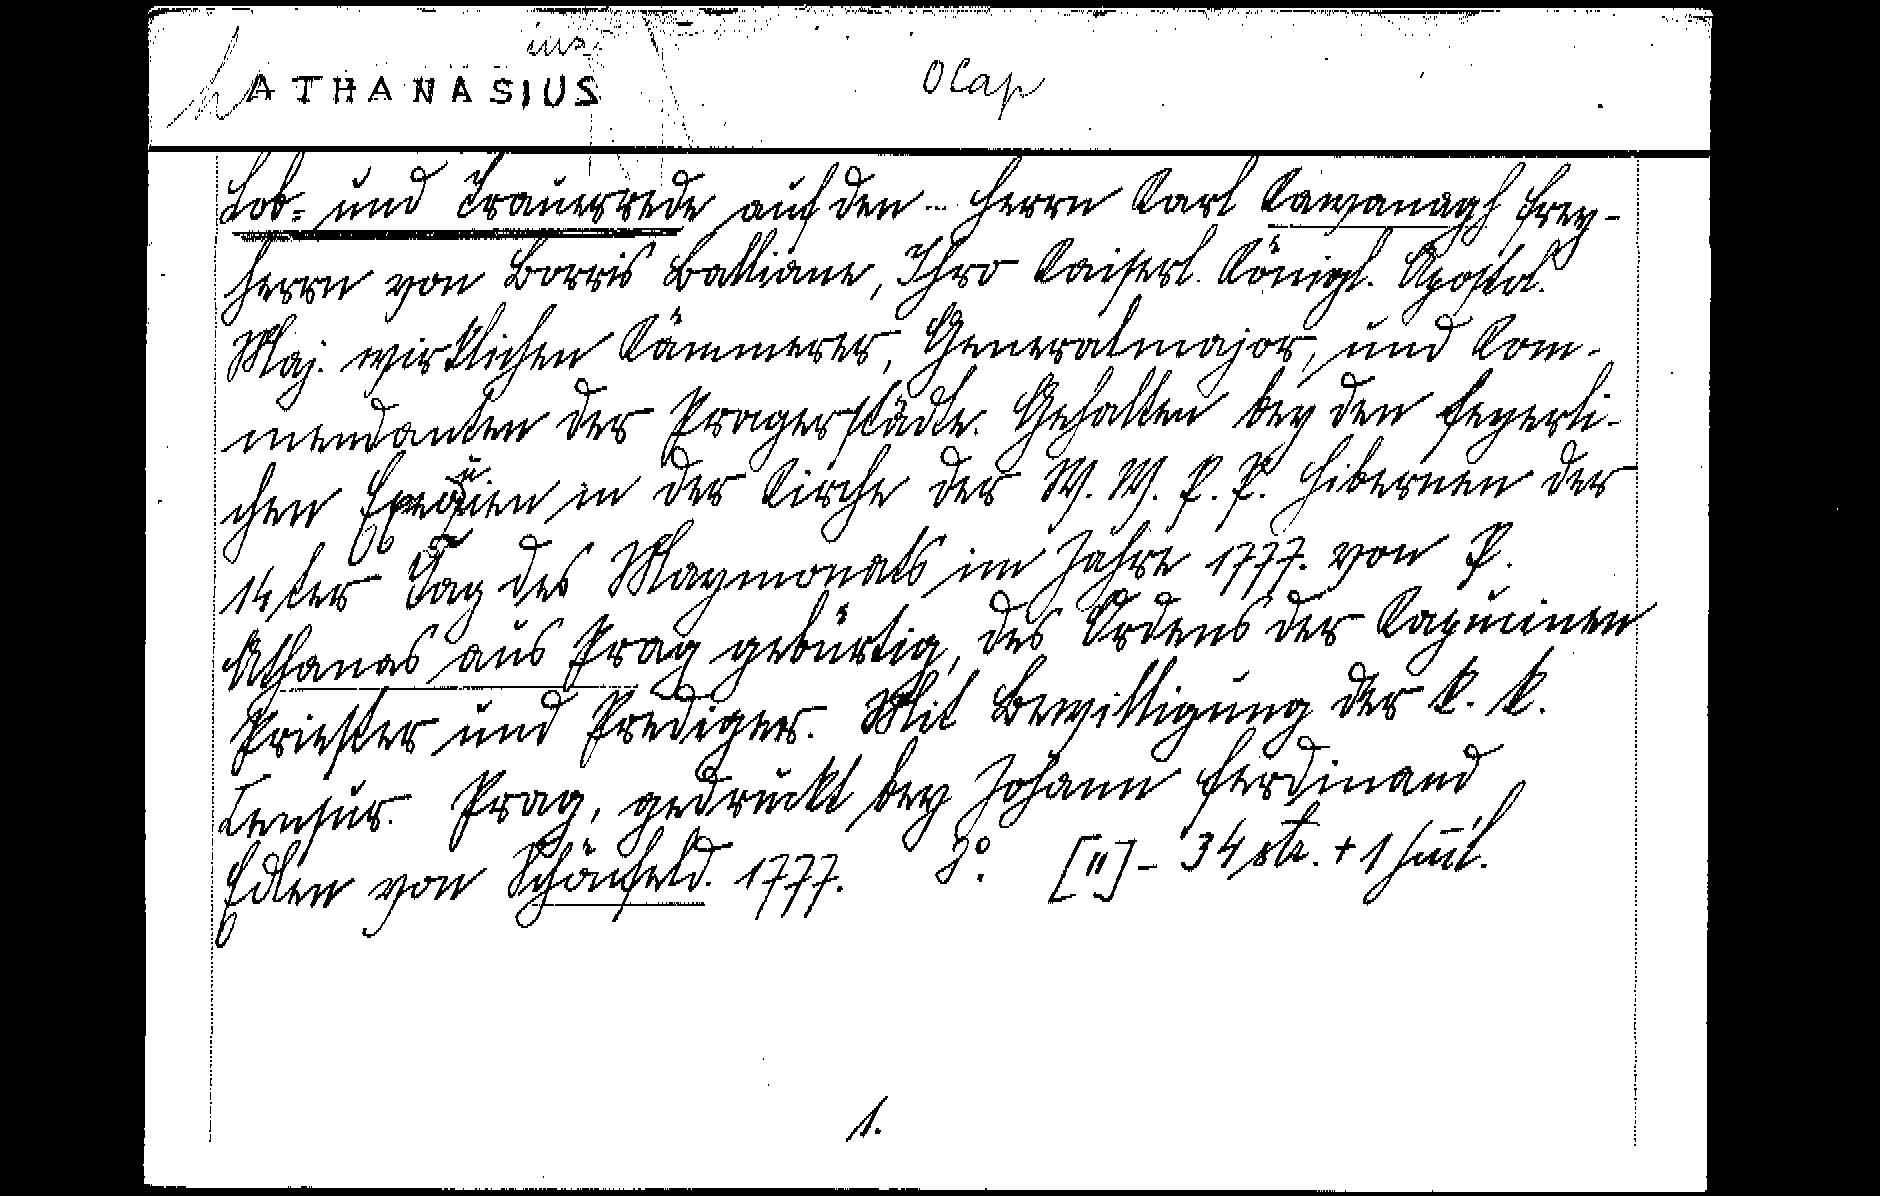 ins
ATHANASIUS OCap
Lob- und Trauerrede auf den ... Herrn Karl Kawanagh Frey-
herrn von Borris Balliane, Ihro Kaiserl. Königl. Apostol.
Maj. wirklichen Kämmerer, Generalmajor, und Kom-
mendanten der Pragerstädte. Gehalten bey den feyerli-
chen Exequien in der Kirche der W. W. P. P. Hibernen der
14ter Tag des Maymonats im Jahre 1777. von P.
Athanas aus Prag gebürtig, des Ordens der Kapucinen
Priester und Prediger. Mit Bewilligung der k. k.
Censur. Prag, gedruckt bey Johann Ferdinand
Edlen von Schönfeld. 1777. 8°. [II] - 34 str. + 1
1.